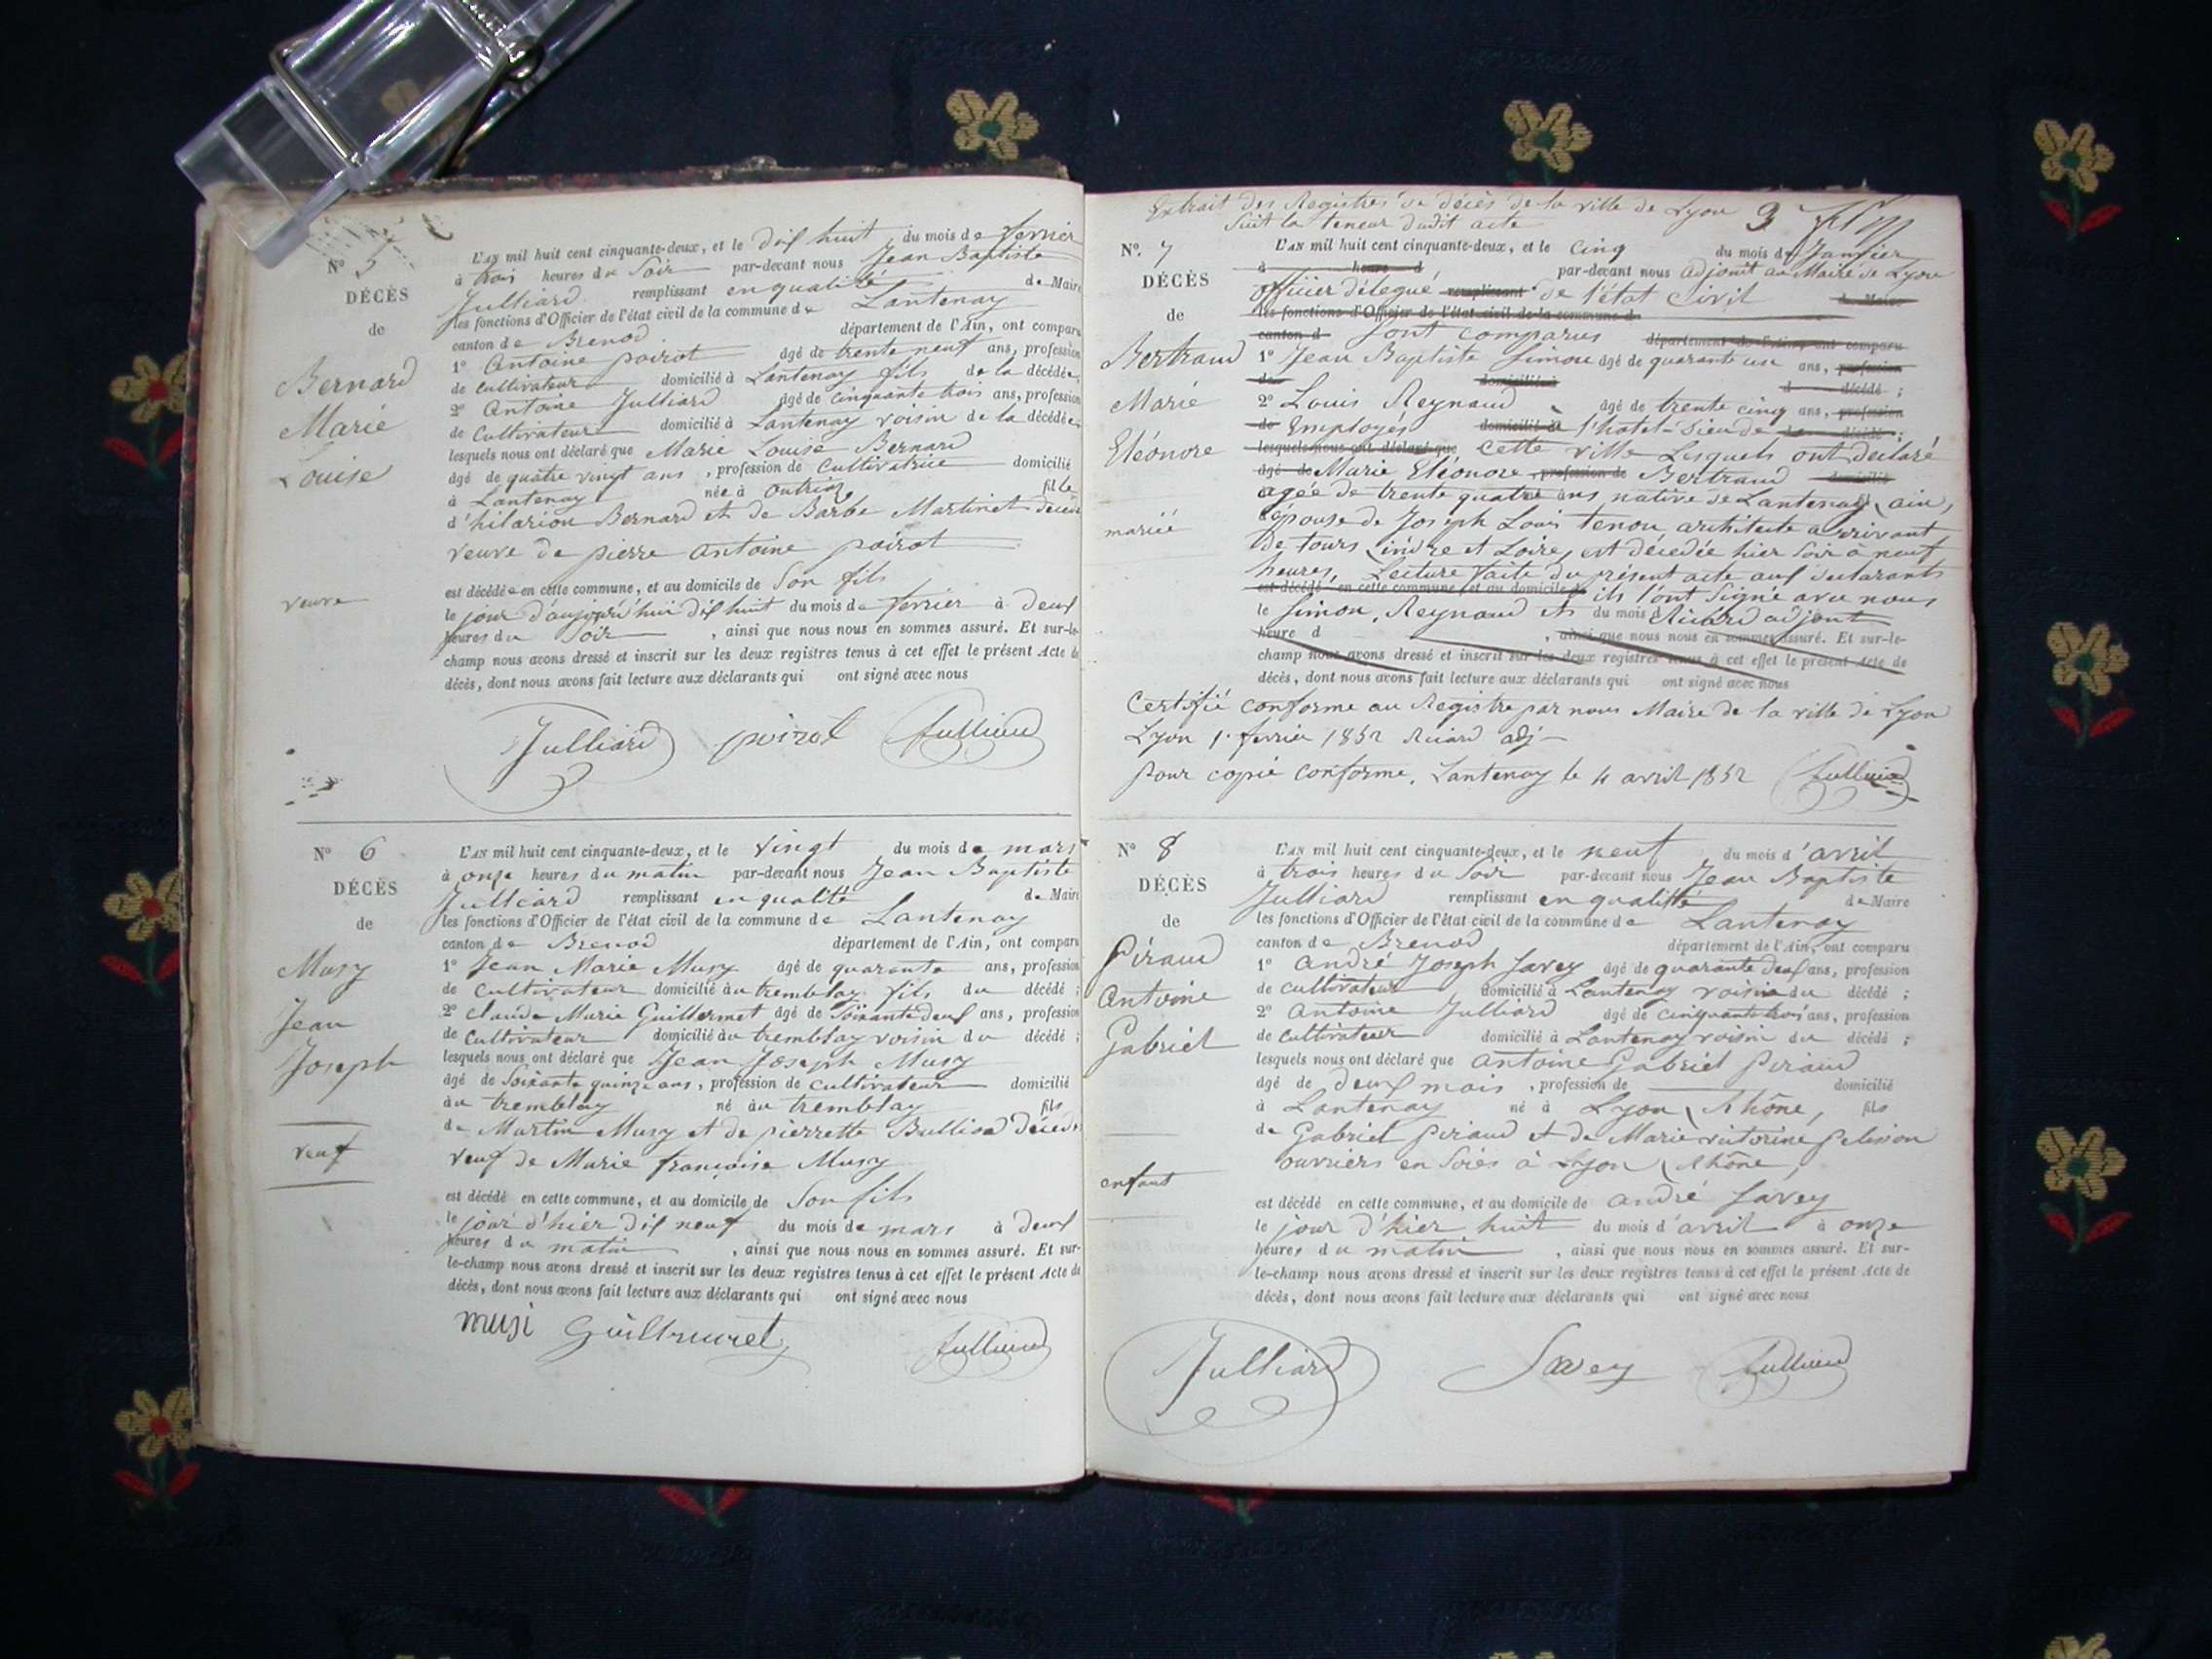 N° 5
DÉCÈS
de
Bernard
Marie
Louise
veuve
L'AN mil huit cent cinquante-deux, et le dix huit du mois de fevrier
à trois heures du Soir par-devant nous Jean Baptiste
Julliard remplissant en qualité de Maire
les fonctions d'Officier de l'état civil de la commune de Lantenay
canton de Brenod département de l'Ain, ont comparu
1° Antoine poirot âgé de trente neuf ans, profession
de cultivateur domicilié à Lantenay fils de la décédée,
2° Antoine Julliard âgé de cinquante trois ans, profession
de Cultivateur domicilié à Lantenay voisin de la décédée,
lesquels nous ont déclaré que Marie Louise Bernard
âgé de quatre vingt ans, profession de Cultivatrice domicilié
à Lantenay née à Outriaz fille
d'hilarion Bernard et de Barbe Martinet décédés
veuve de pierre antoine poirot
est décédée en cette commune, et au domicile de Son fils
le jour d'aujourd'hui dix huit du mois de fevrier à deux
heures du Soir, ainsi que nous nous en sommes assuré. Et sur-le-
champ nous avons dressé et inscrit sur les deux registres tenus à cet effet le présent Acte de
décès, dont nous avons fait lecture aux déclarants qui ont signé avec nous
Julliard poirot Julliard
N° 6
DÉCÈS
de
Musy
Jean
Joseph
veuf
L'AN mil huit cent cinquante-deux, et le vingt du mois de mars
à onze heures du matin par-devant nous Jean Baptiste
Julliard remplissant en qualité de Maire
les fonctions d'Officier de l'état civil de la commune de Lantenay
canton de Brenod département de l'Ain, ont comparu
1° Jean Marie Musy âgé de quarante ans, profession
de Cultivateur domicilié au tremblay fils du décédé ;
2° claude Marie Guillermet âgé de Soixante deux ans, profession
de Cultivateur domicilié au tremblay voisin du décédé ;
lesquels nous ont déclaré que Jean Joseph Musy
âgé de Soixante quinze ans, profession de cultivateur domicilié
au tremblay né au tremblay fils
de Martin Musy et de pierrette Bulliod décédés
veuf de Marie françoise Musy
est décédé en cette commune, et au domicile de Son fils
le jour d'hier dix neuf du mois de mars à deux
heures du matin, ainsi que nous nous en sommes assuré. Et sur-
le-champ nous avons dressé et inscrit sur les deux registres tenus à cet effet le présent Acte de
décès, dont nous avons fait lecture aux déclarants qui ont signé avec nous
musi Guillermet Julliard
Extrait des Registres de décès de la ville de Lyon 3
Suit la teneur dudit acte
N°. 7
DÉCÈS
de
Bertraud
Marie
Eléonore
mariée
L'AN mil huit cent cinquante-deux, et le cinq du mois de Janvier
à heure d par-devant nous adjoint au Maire de Lyon
officier délégué remplissant de l'état Civil de Maire
les fonctions d'Officier de l'état civil de la commune d
canton d sont comparus département de l'Ain, ont comparu
1° Jean Baptiste Simon âgé de quarante un ans, profession
de domicilié à d décédé ;
2° Louis Reynaud âgé de trente cinq ans, profession
de Employés domicilié à à l'hotel-Dieu de décédé ;
lesquels nous ont déclaré que cette ville Lesquels ont déclaré
âgé de Marie Eléonore, profession de Bertraud domicilié
agée de trente quatre ans native de Lantenay (ain)
épouse de Joseph Louis tenou architecte
De tours (indre et Loire) est décédée hier Soir à neuf
heures. Lecture faite du présent acte aux declarants
est décédé en cette commune, et au domicile de ils l'ont Signé avec nous
le Simon, Reynaud et du mois d Ricard adjoint
heure d, ainsi que nous nous en sommes assuré. Et sur-le-
champ nous avons dressé et inscrit sur les deux registres tenus à cet effet le présent Acte de
décès, dont nous avons fait lecture aux déclarants qui ont signé avec nous
Certifié conforme au Registre par nous Maire de la ville de Lyon
Lyon 1er fevrier 1852 Ricard adj
Pour copie conforme, Lantenay le 4 avril 1852 Julliard
N° 8
DÉCÈS
de
Piraud
Antoine
Gabriel
enfant
L'AN mil huit cent cinquante-deux, et le neuf du mois d'avril
à trois heures du Soir par-devant nous Jean Baptiste
Julliard remplissant en qualité de Maire
les fonctions d'Officier de l'état civil de la commune de Lantenay
canton de Brenod département de l'Ain, ont comparu
1° André Joseph Savey âgé de quarante deux ans, profession
de cultivateur domicilié à Lantenay voisin du décédé ;
2° Antoine Julliard âgé de cinquante trois ans, profession
de cultivateur domicilié à Lantenay voisin du décédé ;
lesquels nous ont déclaré que antoine Gabriel Piraud
âgé de deux mois, profession de domicilié
à Lantenay né à Lyon (Rhône) fils
de Gabriel Piraud et de Marie victorine Pelisson
ouvriers en Soies à Lyon (Rhône)
est décédé en cette commune, et au domicile de André Savey
le jour d'hier huit du mois d'avril à onze
heures du matin, ainsi que nous nous en sommes assuré. Et sur-
le-champ nous avons dressé et inscrit sur les deux registres tenus à cet effet le présent Acte de
décès, dont nous avons fait lecture aux déclarants qui ont signé avec nous
Julliard Savey Julliard